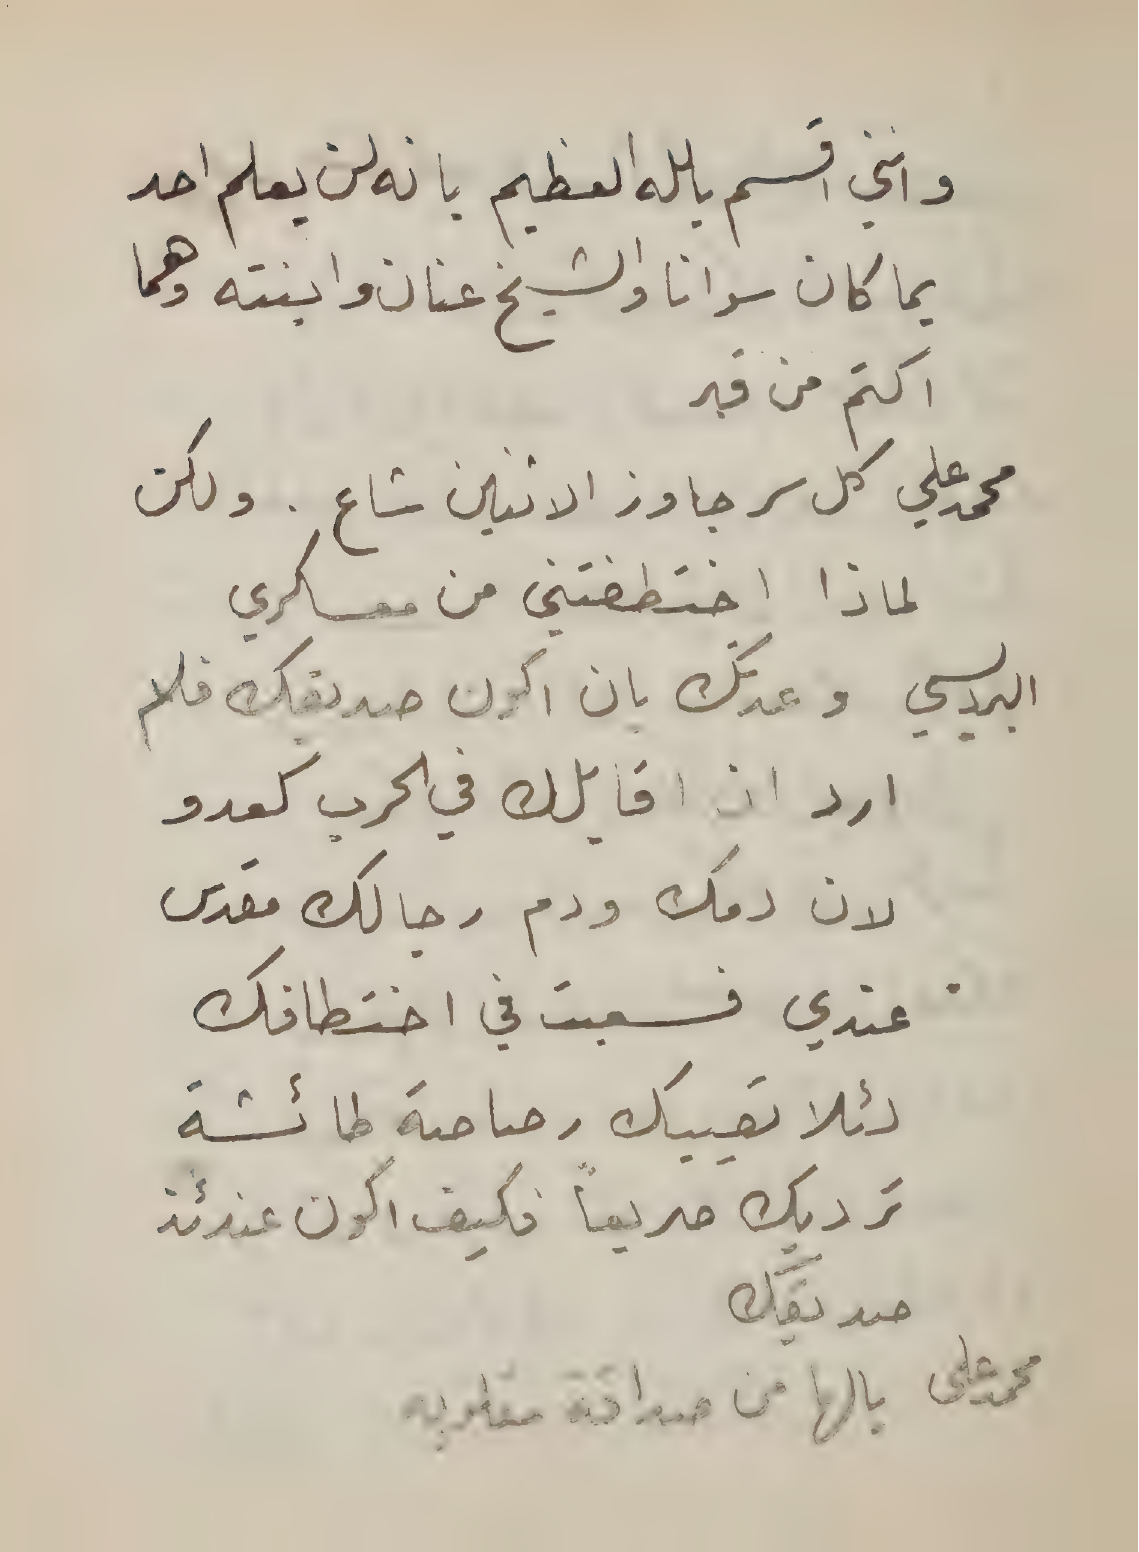 وانني اقسم بالله العظيم بانه لن يعلم احد
بما كان سوانا والشيخ عنان وابنته وهما
اكتم من قبر
محمد علي كل سر جاوز الاثنين شاع . ولكن
لماذا اختطفتني من معسكري
البرديسي وعدتك بان اكون صديقك فلم
ارد ان اقابلك في الحرب كعدو
لان دمك ودم رجالك مقدس
عندي فسعيت في اختطافك
لئلا تصيبك رصاصة طائشة
ترديك صريعاً فكيف اكون عندئذ
صديقك
محمد علي يالها من صداقة مقلوبه